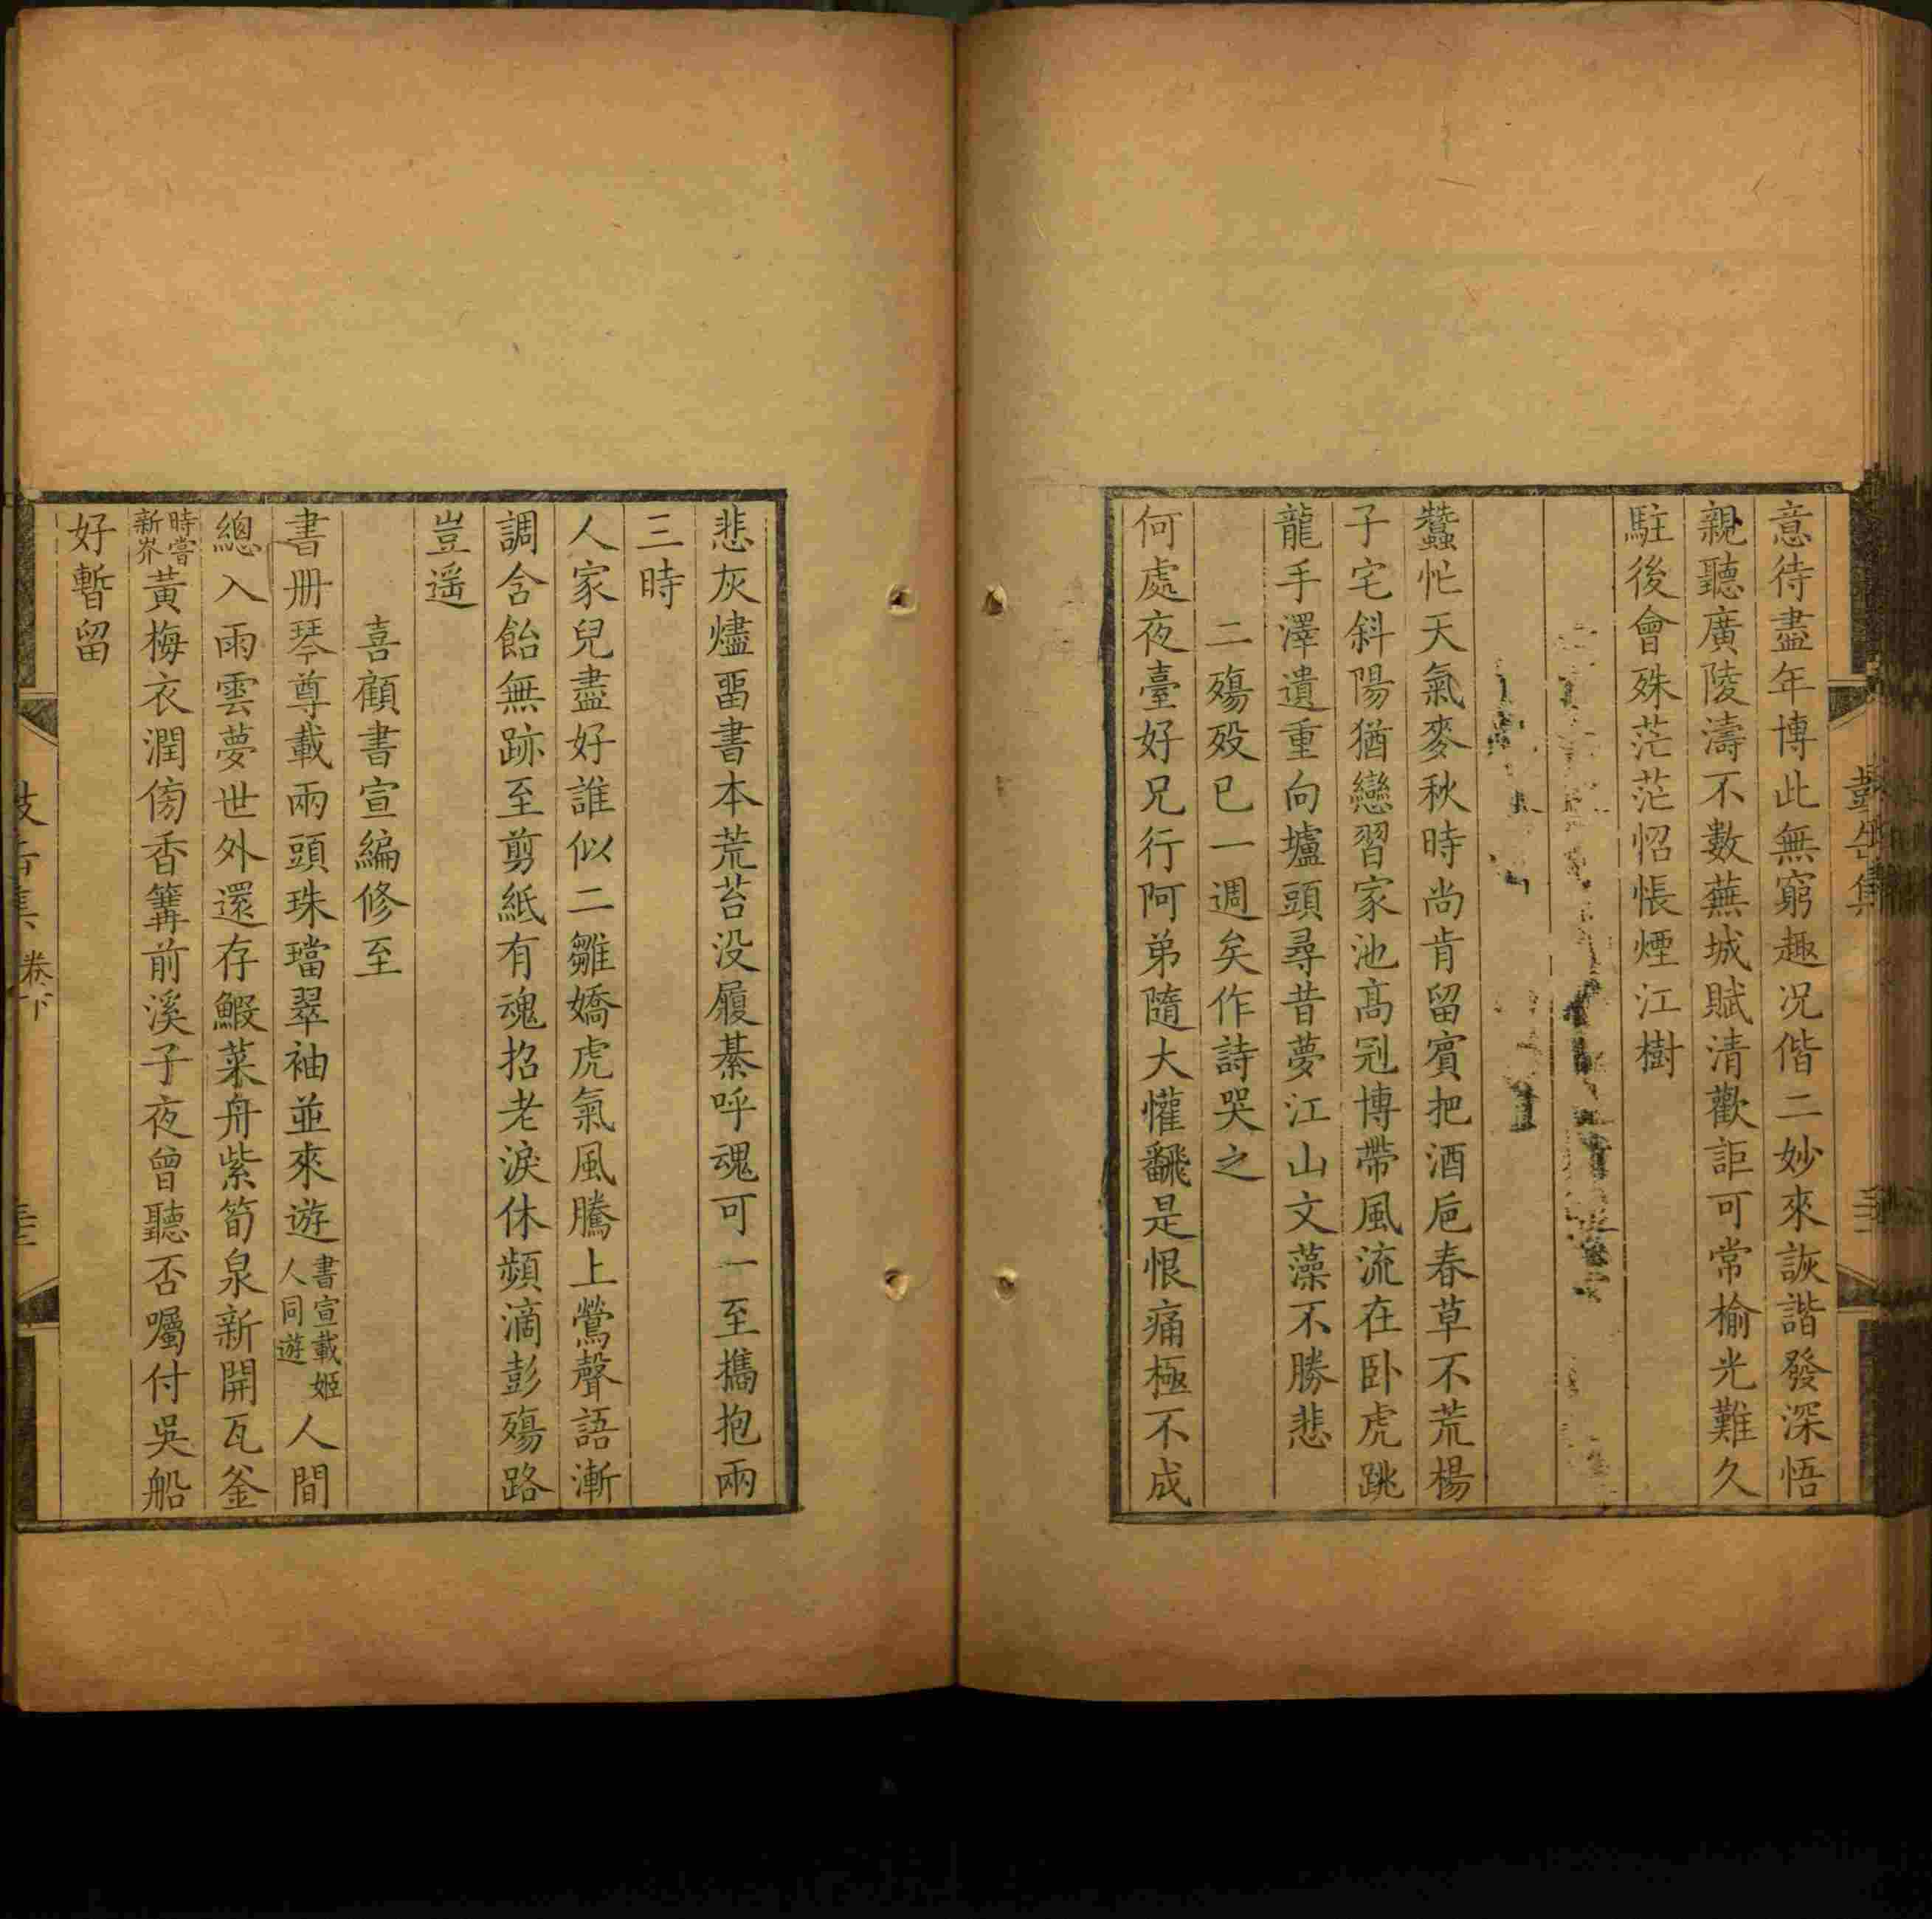 意待盡年博此無窮趣况偕二妙來詼諧發深悟
親聽廣陵濤不數蕪城賦清歡詎可常榆光難久
駐後會殊茫茫怊悵煙江樹
蠶忙天氣麥秋時尚肯留賓把酒巵春草不荒楊
子宅斜陽猶戀習家池高冠博帶風流在卧虎跳
龍手澤遺重向壚頭尋昔夢江山文藻不勝悲
二殤歿已一週矣作詩哭之
何處夜臺好兄行阿弟隨大懽飜是恨痛極不成
悲灰燼畱書本荒苔没履綦呼魂可一至攜抱兩
三時
人家兒盡好誰似二雛嬌虎氣風騰上鶯聲語漸
調含飴無跡至剪紙有魂招老淚休頻滴彭殤路
豈遥
喜顧書宣編修至
書册琴尊載兩頭珠璫翠袖並來遊書宣載姬人同遊人間
總入雨雲夢世外還存鰕菜舟紫筍泉新開瓦釜
時嘗新岕黃梅衣潤傍香篝前溪子夜曾聽否囑付吳船
好暫留
集 卷下